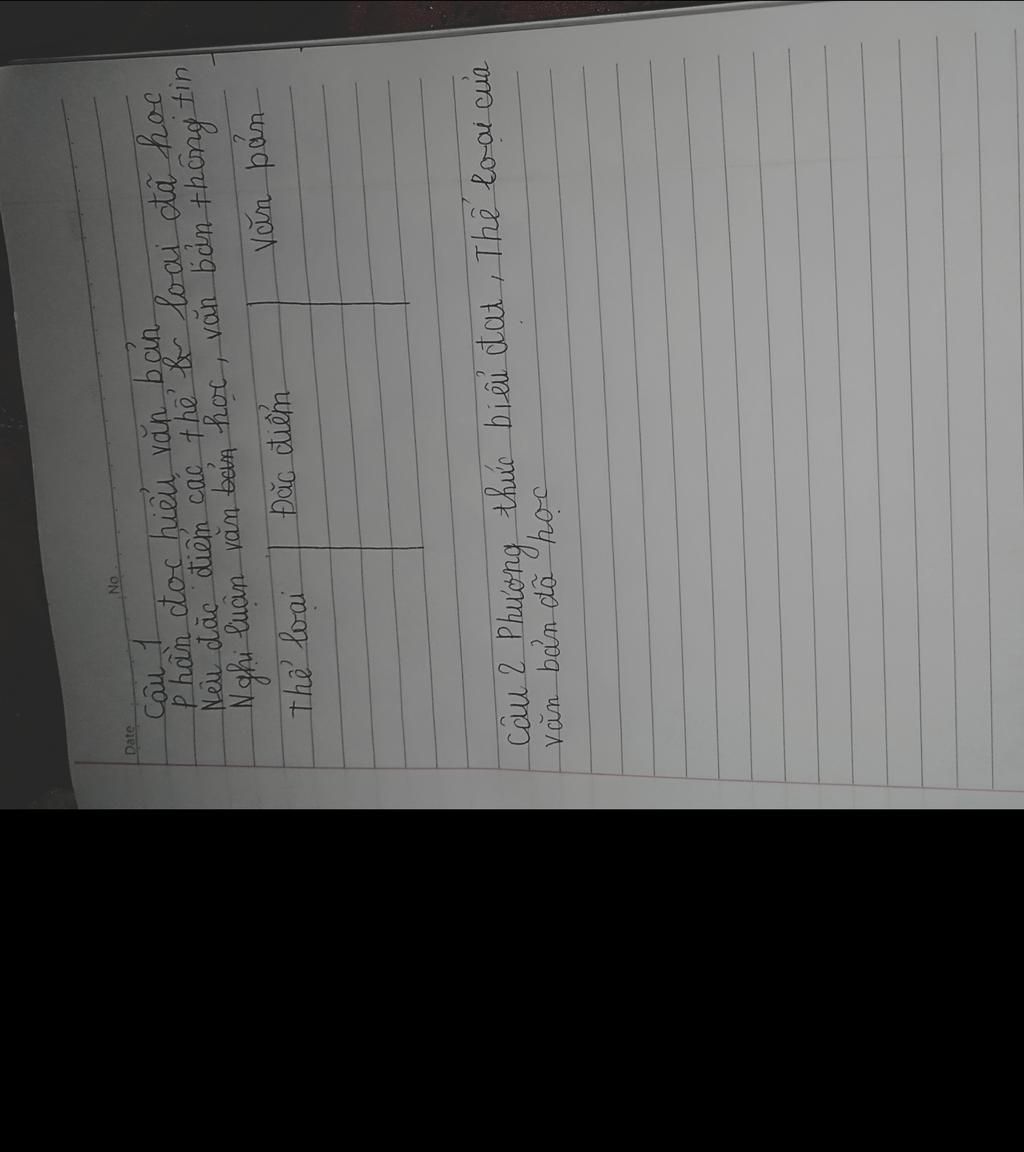 Date
No
Câu 1
Phần đọc hiểu văn bản
Nêu đặc điểm các thể loại đã học
Nghị luận văn học, văn bản thông tin
Thể loại Đặc điểm Văn bản
Câu 2 Phương thức biểu đạt, Thể loại của
văn bản đã học